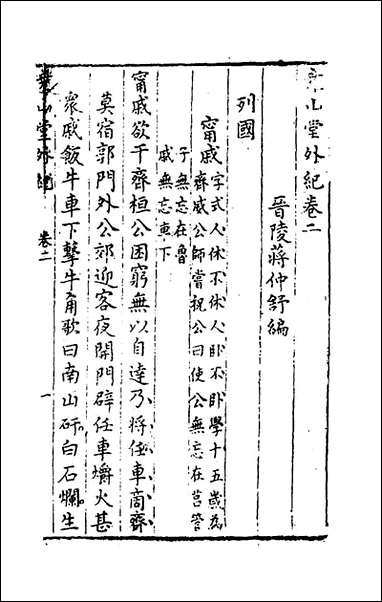 堯山堂外紀卷二
晉陵蔣仲舒編
列國
甯戚字式人休不休人卧不卧學十五歲為
齊威公師嘗祝公曰使公無忘在莒管
子無忘在魯
戚無忘車下
甯戚欲干齊桓公困窮無以自達乃將任車商齊
莫宿郭門外公郊迎客夜開門辟任車爝火甚
衆戚飯牛車下擊牛角歌曰南山矸白石爛生
堯山堂外紀
卷二
一